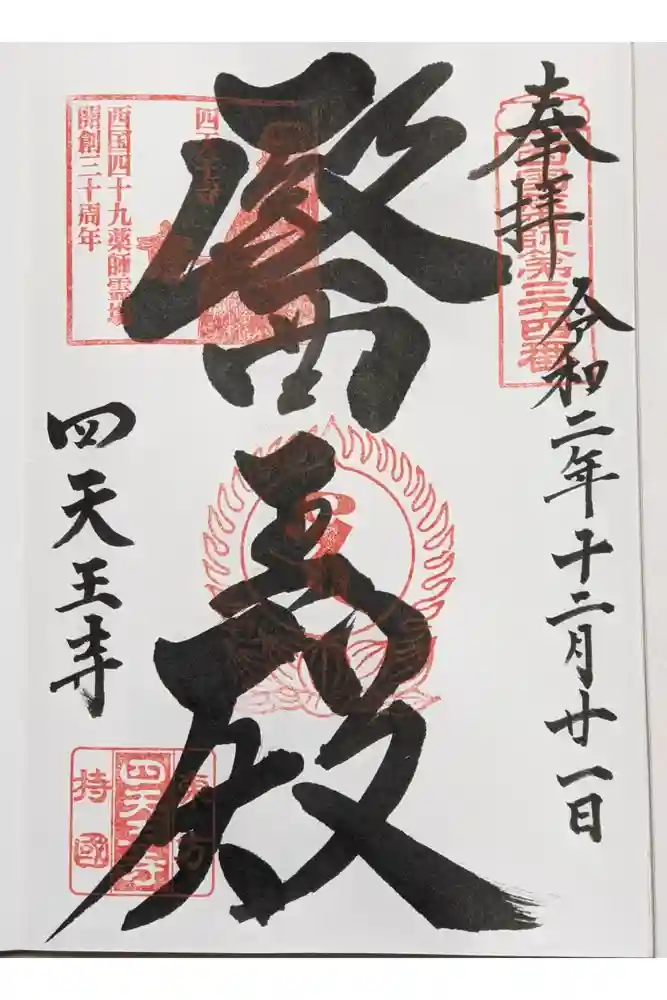 奉拝
令和二年十二月廿一日
醫王殿
四天王寺
四天王寺
西国四十九薬師霊場
開創三十周年
東方
四天王寺
持國